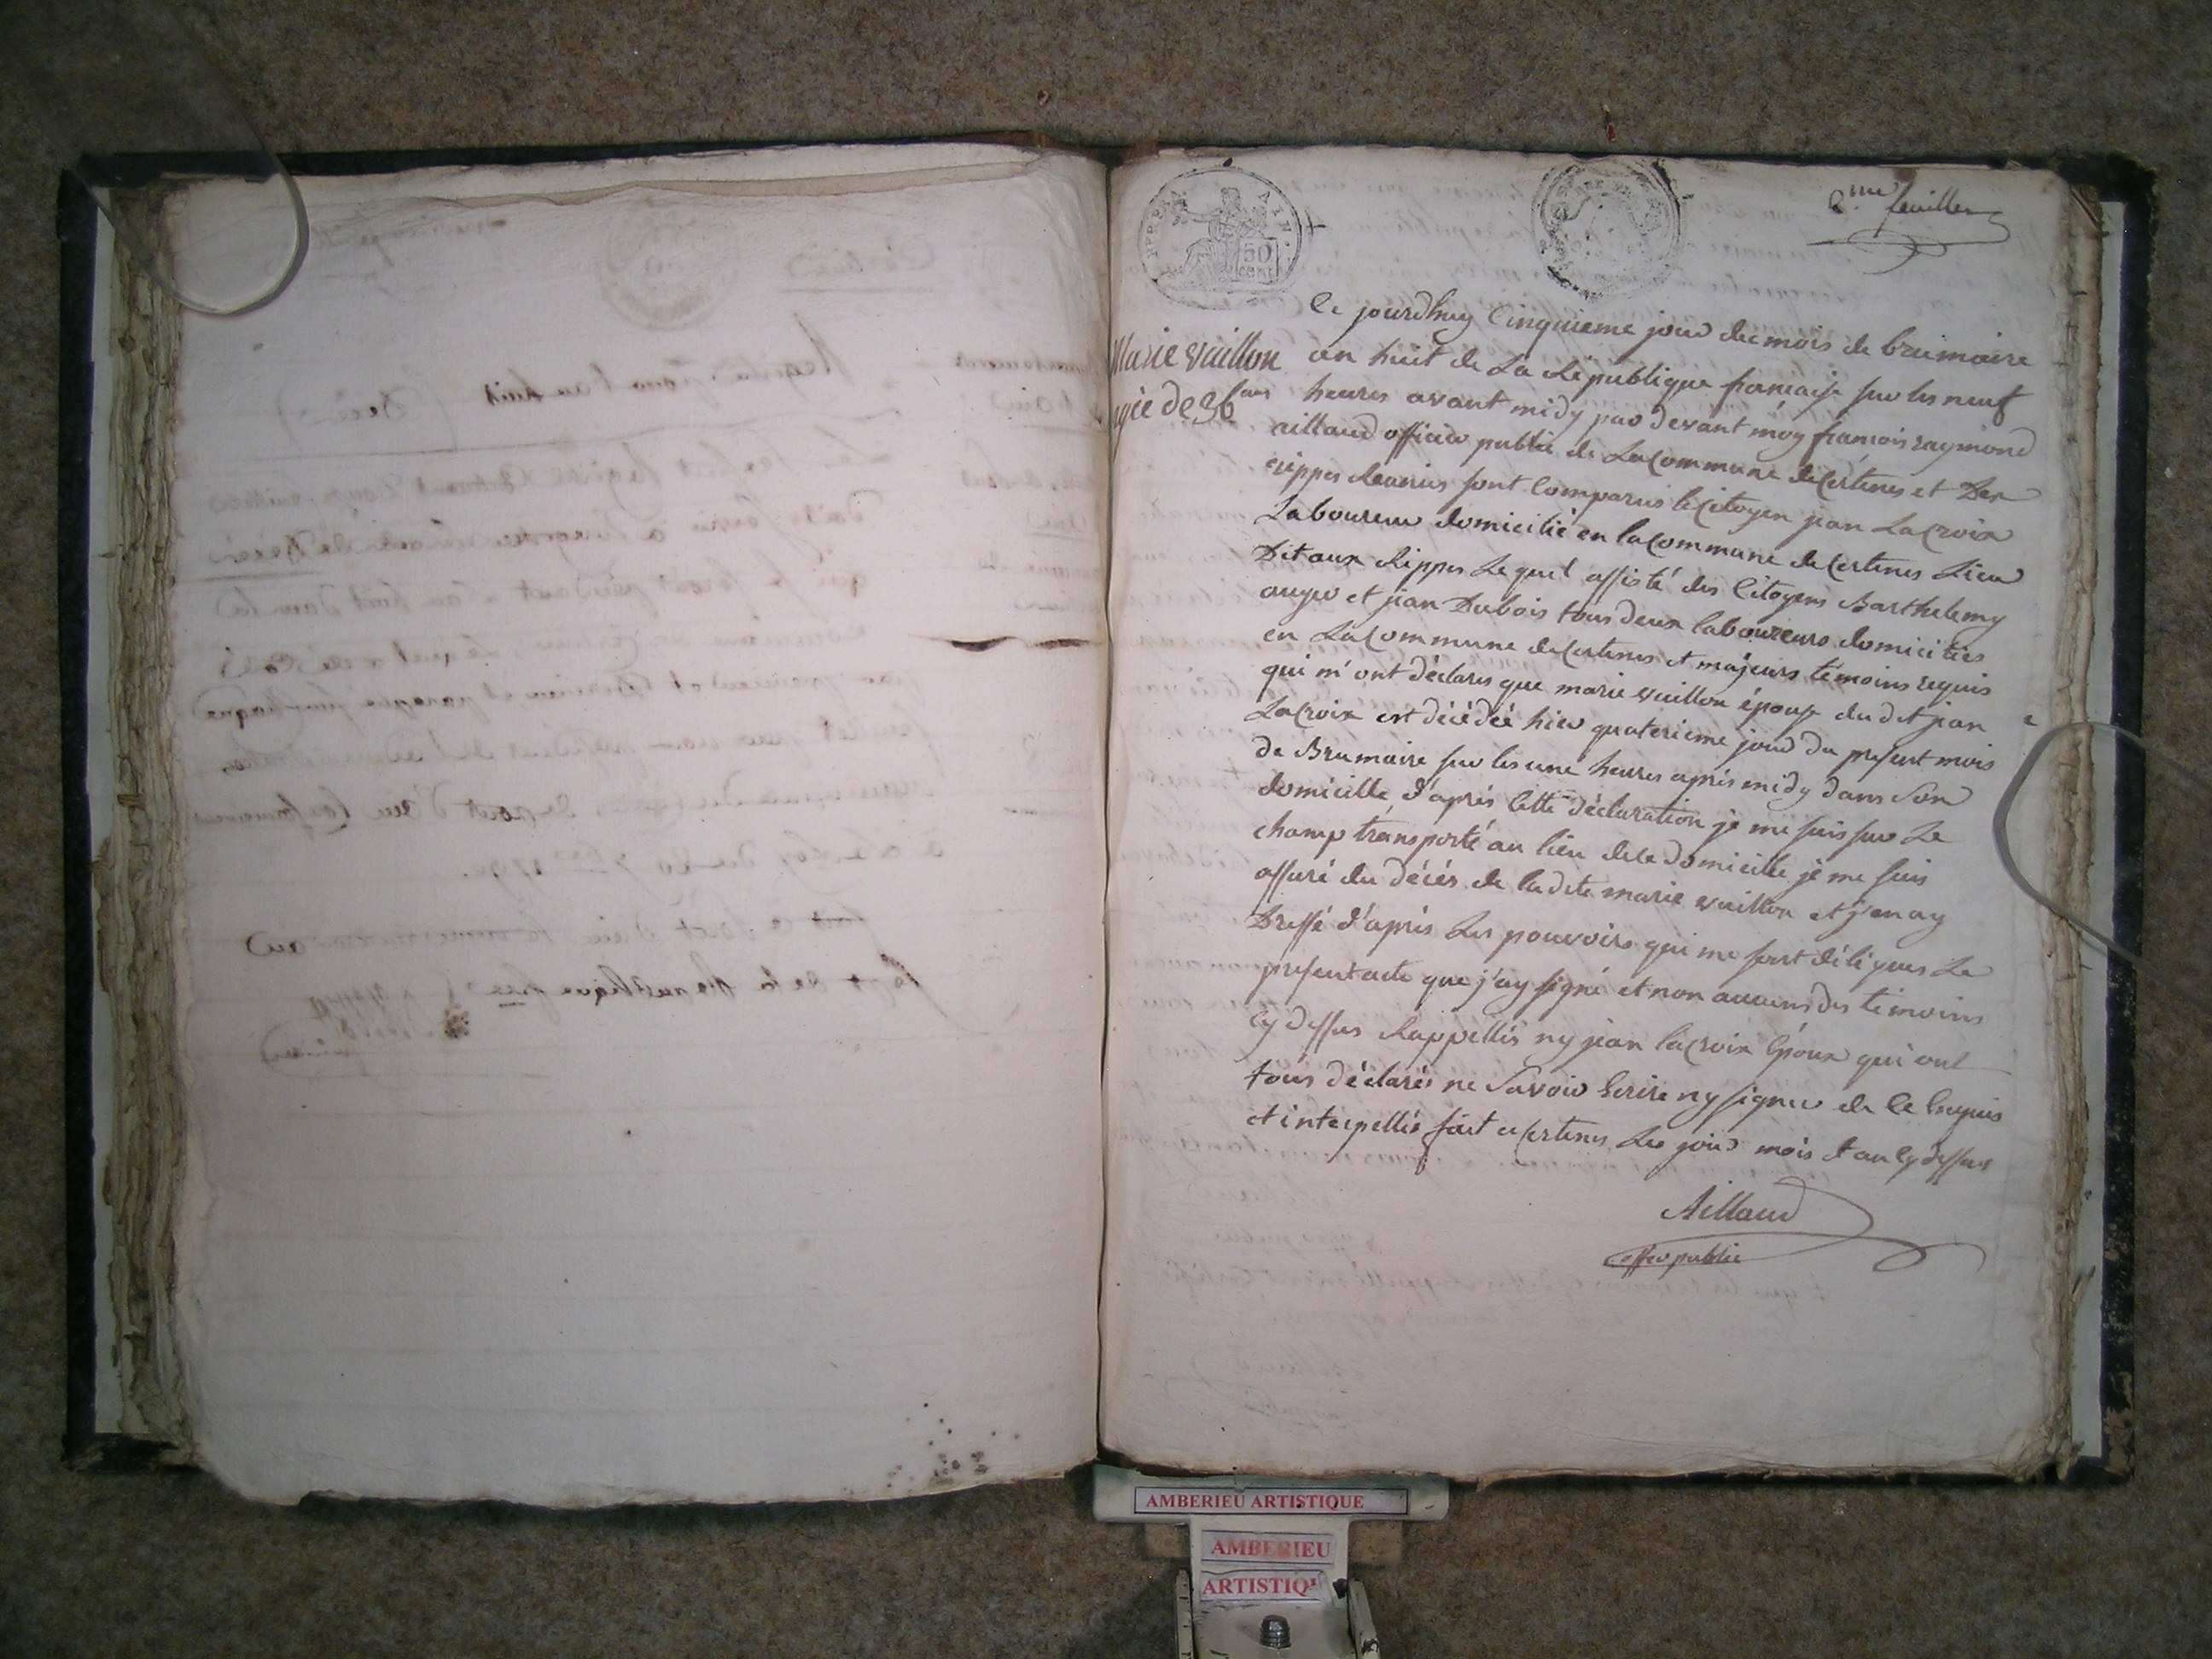 2.me feuillet
Ce jourdhuy Cinquieme jour du mois de brumaire
Marie vuillon
agée de 36 ans
an huit de La République française sur les neuf
heures avant midy par devant moy françois raymond
aillaud officier public de La Commune de Certines et Des
rippes reunies sont Comparus le Citoyen jean LaCroix
Laboureur domicilié en la Commune de Certines Lieu
Dit aux Rippes Le quel assisté des Citoyens Barthelemy
auger et jean Dubois tous deux laboureurs domiciliés
en La Commune de Certines et majeurs témoins requis
qui m'ont déclarés que marie vuillon épouse du dit jean
LaCroix est décédée hier quaterieme jour du present mois
de Brumaire sur les une heures après midy dans Son
domicille, d'après Cette déclaration je me suis sur Le
champ transporté au lieu de Ce domicille je me suis
assuré du décés de la dite marie vuillon et j'en ay
Dressé d'après Les pouvoirs qui me sont délégués Le
present acte que j'ay signé et non aucuns des témoins
Cy dessus Rappellés ny jean laCroix Epoux qui ont
tous déclarés ne Savoir Ecrire ny signer de Ce Enquis
et interpellés fait a Certines Les jour mois et an Cy dessus
Aillaud
offer public
50
CENT.
AIN.
AMBERIEU ARTISTIQUE
AMBERIEU
ARTISTIQU